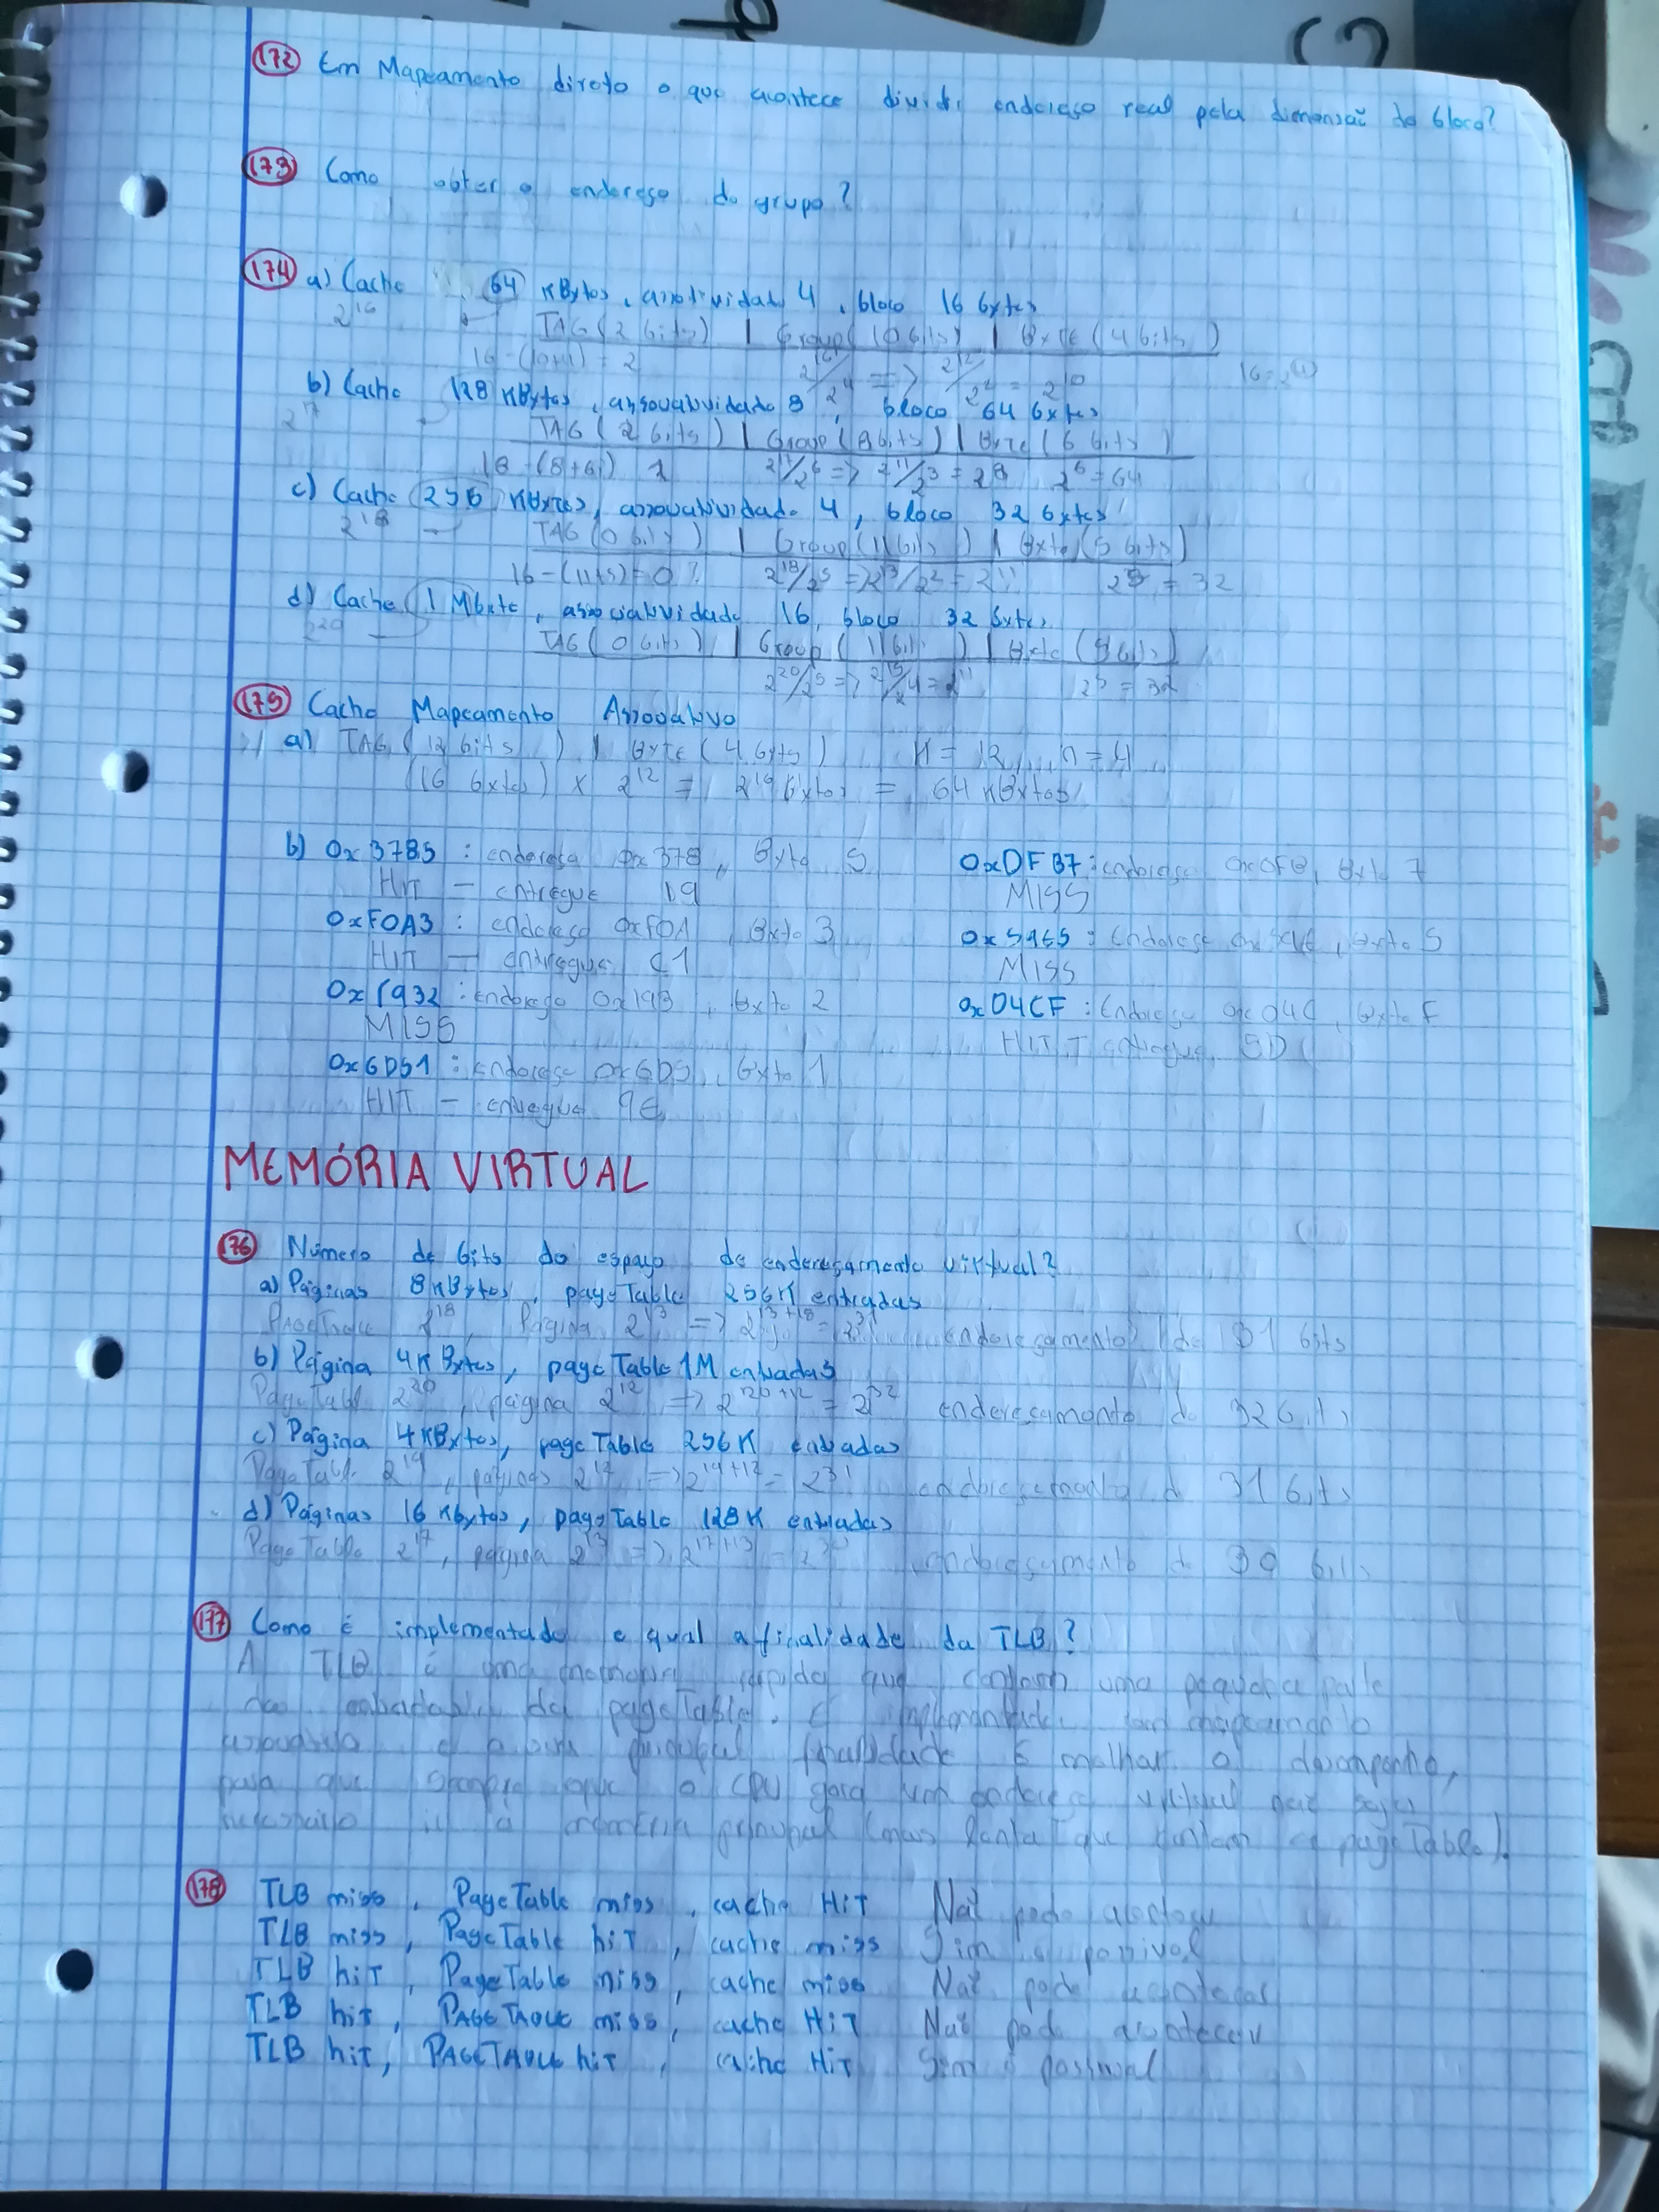 172 Em Mapeamento direto o que acontece dividir endereço real pela dimensão do bloco?
173 Como obter o endereço do grupo?
174 a) Cache 64 KBytes, associatividade 4, bloco 16 bytes
2^16 TAG (2 bits) | Group (10 bits) | Byte (4 bits)
16-(10+4) = 2 2^16/2^4 => 2^12/2^2 = 2^10 16=2^4
b) Cache 128 KBytes, associatividade 8, bloco 64 bytes
2^17 TAG (2 bits) | Group (8 bits) | Byte (6 bits)
16-(8+6) 2 2^17/2^6 => 2^11/2^3 = 2^8 2^6 = 64
c) Cache 256 KBytes, associatividade 4, bloco 32 bytes
2^18 TAG (0 bits) | Group (11 bits) | Byte (5 bits)
16-(11+5)=0? 2^18/2^5 => 2^13/2^2 = 2^11 2^5 = 32
d) Cache 1 Mbyte, associatividade 16, bloco 32 bytes
2^20 TAG (0 bits) | Group (11 bits) | Byte (5 bits)
2^20/2^5 => 2^15/2^4 = 2^11 2^5 = 32
175 Cache Mapeamento Associativo
a) TAG (12 bits) | Byte (4 bits) K = 12, n = 4
(16 bytes) x 2^12 = 2^16 bytes = 64 KBytes
b) 0x37B5 : endereço 0x37B, Byte 5 0xDFB7 : endereço 0xDFB, Byte 7
HIT - entregue 19 MISS
0xF0A3 : endereço 0xF0A, Byte 3 0x59E5 : Endereço 0x59E, Byte 5
HIT - entregue C1 MISS
0x1932 : endereço 0x193, Byte 2 0x04CF : Endereço 0x04C, Byte F
MISS HIT - entregue 5D
0x6D51 : Endereço 0x6D5, Byte 1
HIT - entregue 9E
MEMÓRIA VIRTUAL
176 Número de bits do espaço de endereçamento virtual?
a) Páginas 8KBytes, pageTable 256K entradas
PageTable 2^18, Página 2^13 => 2^13+18 = 2^31 endereçamento de 31 bits
b) Página 4KBytes, pageTable 1M entradas
PageTable 2^20, página 2^12 => 2^20+12 = 2^32 endereçamento de 32 bits
c) Página 4KBytes, pageTable 256K entradas
PageTable 2^19, páginas 2^12 => 2^19+12 = 2^31 endereçamento de 31 bits
d) Páginas 16 Kbytes, pageTable 128K entradas
PageTable 2^17, página 2^13 => 2^17+13 = 2^30 endereçamento de 30 bits
177 Como é implementada e qual a finalidade da TLB?
A TLB é uma memória rápida que contem uma pequena parte
das entradas da pageTable. É implementada por mapeamento
associativo e a sua principal finalidade é melhorar o desempenho,
para que sempre que o CPU gera um endereço virtual não seja
necessário ir à memória principal (mais lenta que contem a pageTable).
178 TLB miss, PageTable miss, cache HiT Não pode acontecer
TLB miss, PageTable hiT, cache miss Sim é possivel
TLB hiT, PageTable miss, cache miss Não pode acontecer
TLB hiT, PAGETABLE miss, cache HiT Não pode acontecer
TLB hiT, PAGETABLE hiT, cache HiT Sim é possivel